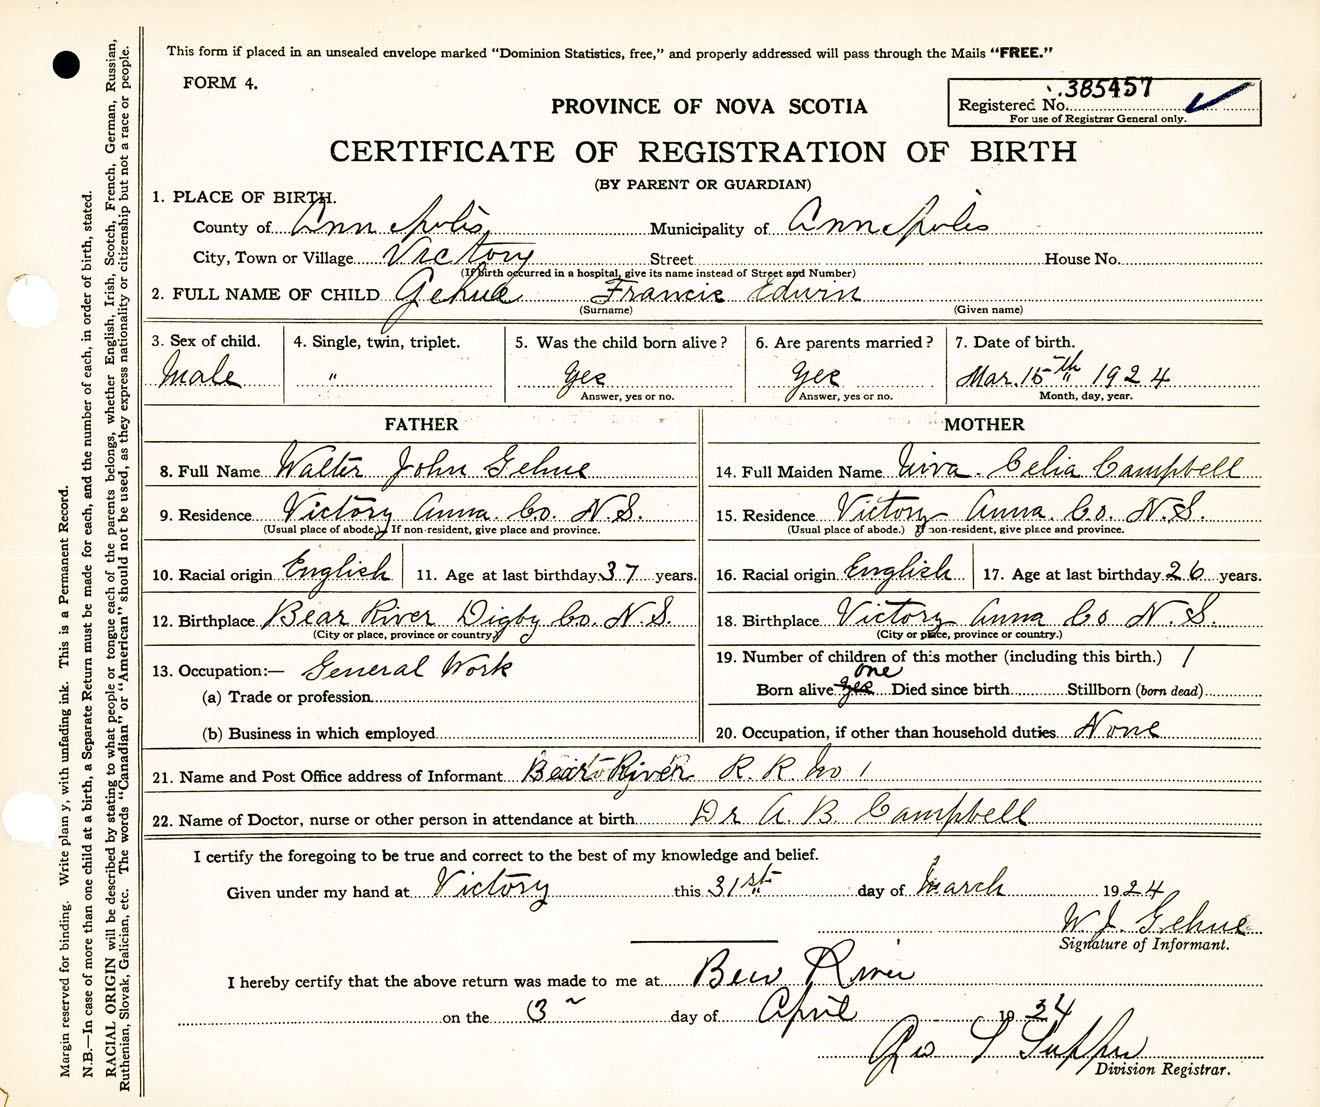 This form if placed in an unsealed envelope marked "Dominion Statistics, free," and properly addressed will pass through the Mails "FREE."
FORM 4.
385457
Registered No.
For use of Registrar General only.
PROVINCE OF NOVA SCOTIA
CERTIFICATE OF REGISTRATION OF BIRTH
(BY PARENT OR GUARDIAN)
1. PLACE OF BIRTH.
County of Annapolis Municipality of Annapolis
City, Town or Village Victory Street House No.
(If birth occurred in a hospital, give its name instead of Street and Number)
2. FULL NAME OF CHILD Gehue Francis Edwin
(Surname) (Given name)
3. Sex of child. 4. Single, twin, triplet. 5. Was the child born alive? 6. Are parents married? 7. Date of birth.
Male " Yes Yes Mar. 15th 1924
Answer, yes or no. Answer, yes or no. Month, day, year.
FATHER MOTHER
8. Full Name Walter John Gehue 14. Full Maiden Name Celia Campbell
9. Residence Victory Anna. Co. N.S. 15. Residence Victory Anna. Co. N.S.
(Usual place of abode.) If non-resident, give place and province. (Usual place of abode.) If non-resident, give place and province.
10. Racial origin English 11. Age at last birthday 37 years. 16. Racial origin English 17. Age at last birthday 26 years.
12. Birthplace Bear River Digby Co. N.S. 18. Birthplace Victory Anna Co N.S.
(City or place, province or country.) (City or place, province or country.)
13. Occupation:— General Work 19. Number of children of this mother (including this birth.) 1
one
(a) Trade or profession Born alive yes Died since birth Stillborn (born dead)
(b) Business in which employed 20. Occupation, if other than household duties None
21. Name and Post Office address of Informant Bear River R. R. No 1
22. Name of Doctor, nurse or other person in attendance at birth Dr A. B. Campbell
I certify the foregoing to be true and correct to the best of my knowledge and belief.
Given under my hand at Victory this 31st day of March 1924
W. J. Gehue
Signature of Informant.
I hereby certify that the above return was made to me at Bear River
on the 3 day of April 1924
Geo
Division Registrar.
Margin reserved for binding. Write plainly, with unfading ink. This is a Permanent Record.
N.B.—In case of more than one child at a birth, a Separate Return must be made for each, and the number of each, in order of birth, stated.
RACIAL ORIGIN will be described by stating to what people or tongue each of the parents belongs, whether English, Irish, Scotch, French, German, Russian,
Ruthenian, Slovak, Galician, etc. The words "Canadian" or "American" should not be used, as they express nationality or citizenship but not a race or people.